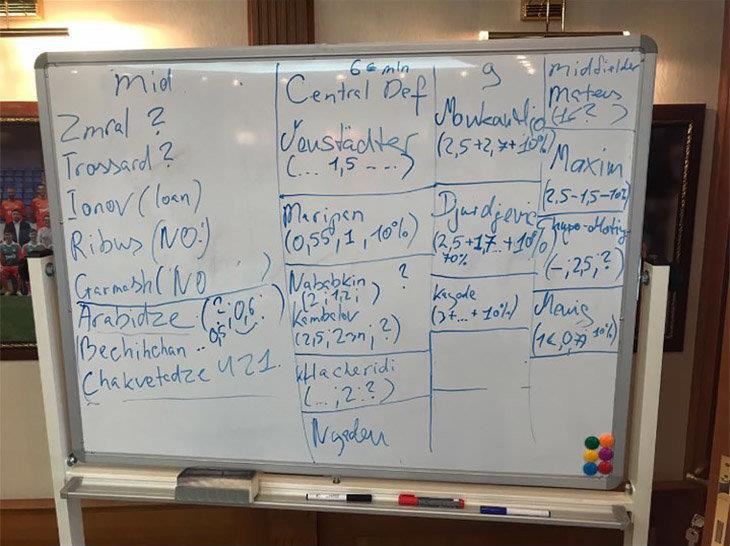 Mid
Zmral ?
Trossard ?
Ionov (loan)
Ribus (NO:)
Garmash (NO )
Arabidze (2; 0,6;
0,5;
Bechihchan ..
Chakvetadze U21.
6 € mln
Central Def
Neustädter
(... 1,5 ...)
Maripan
(0,55, 1, 10%)
Nababkin ?
(2; 1,2; )
Kambolov
(2,5; 2 3n; ?)
Khacheridi
(...; 2; ?)
Ngadeu
9
(2,5+2,7+10%)
Djurdjevic
(2,5+1,7..+10%)
10%
Kayode
(3+...+10%)
Midfielder
Mateus
(1€ ? )
Maxim
(2,5-1,5-10%)
(-; 2,5; ?)
(1€, 0,7 10%)